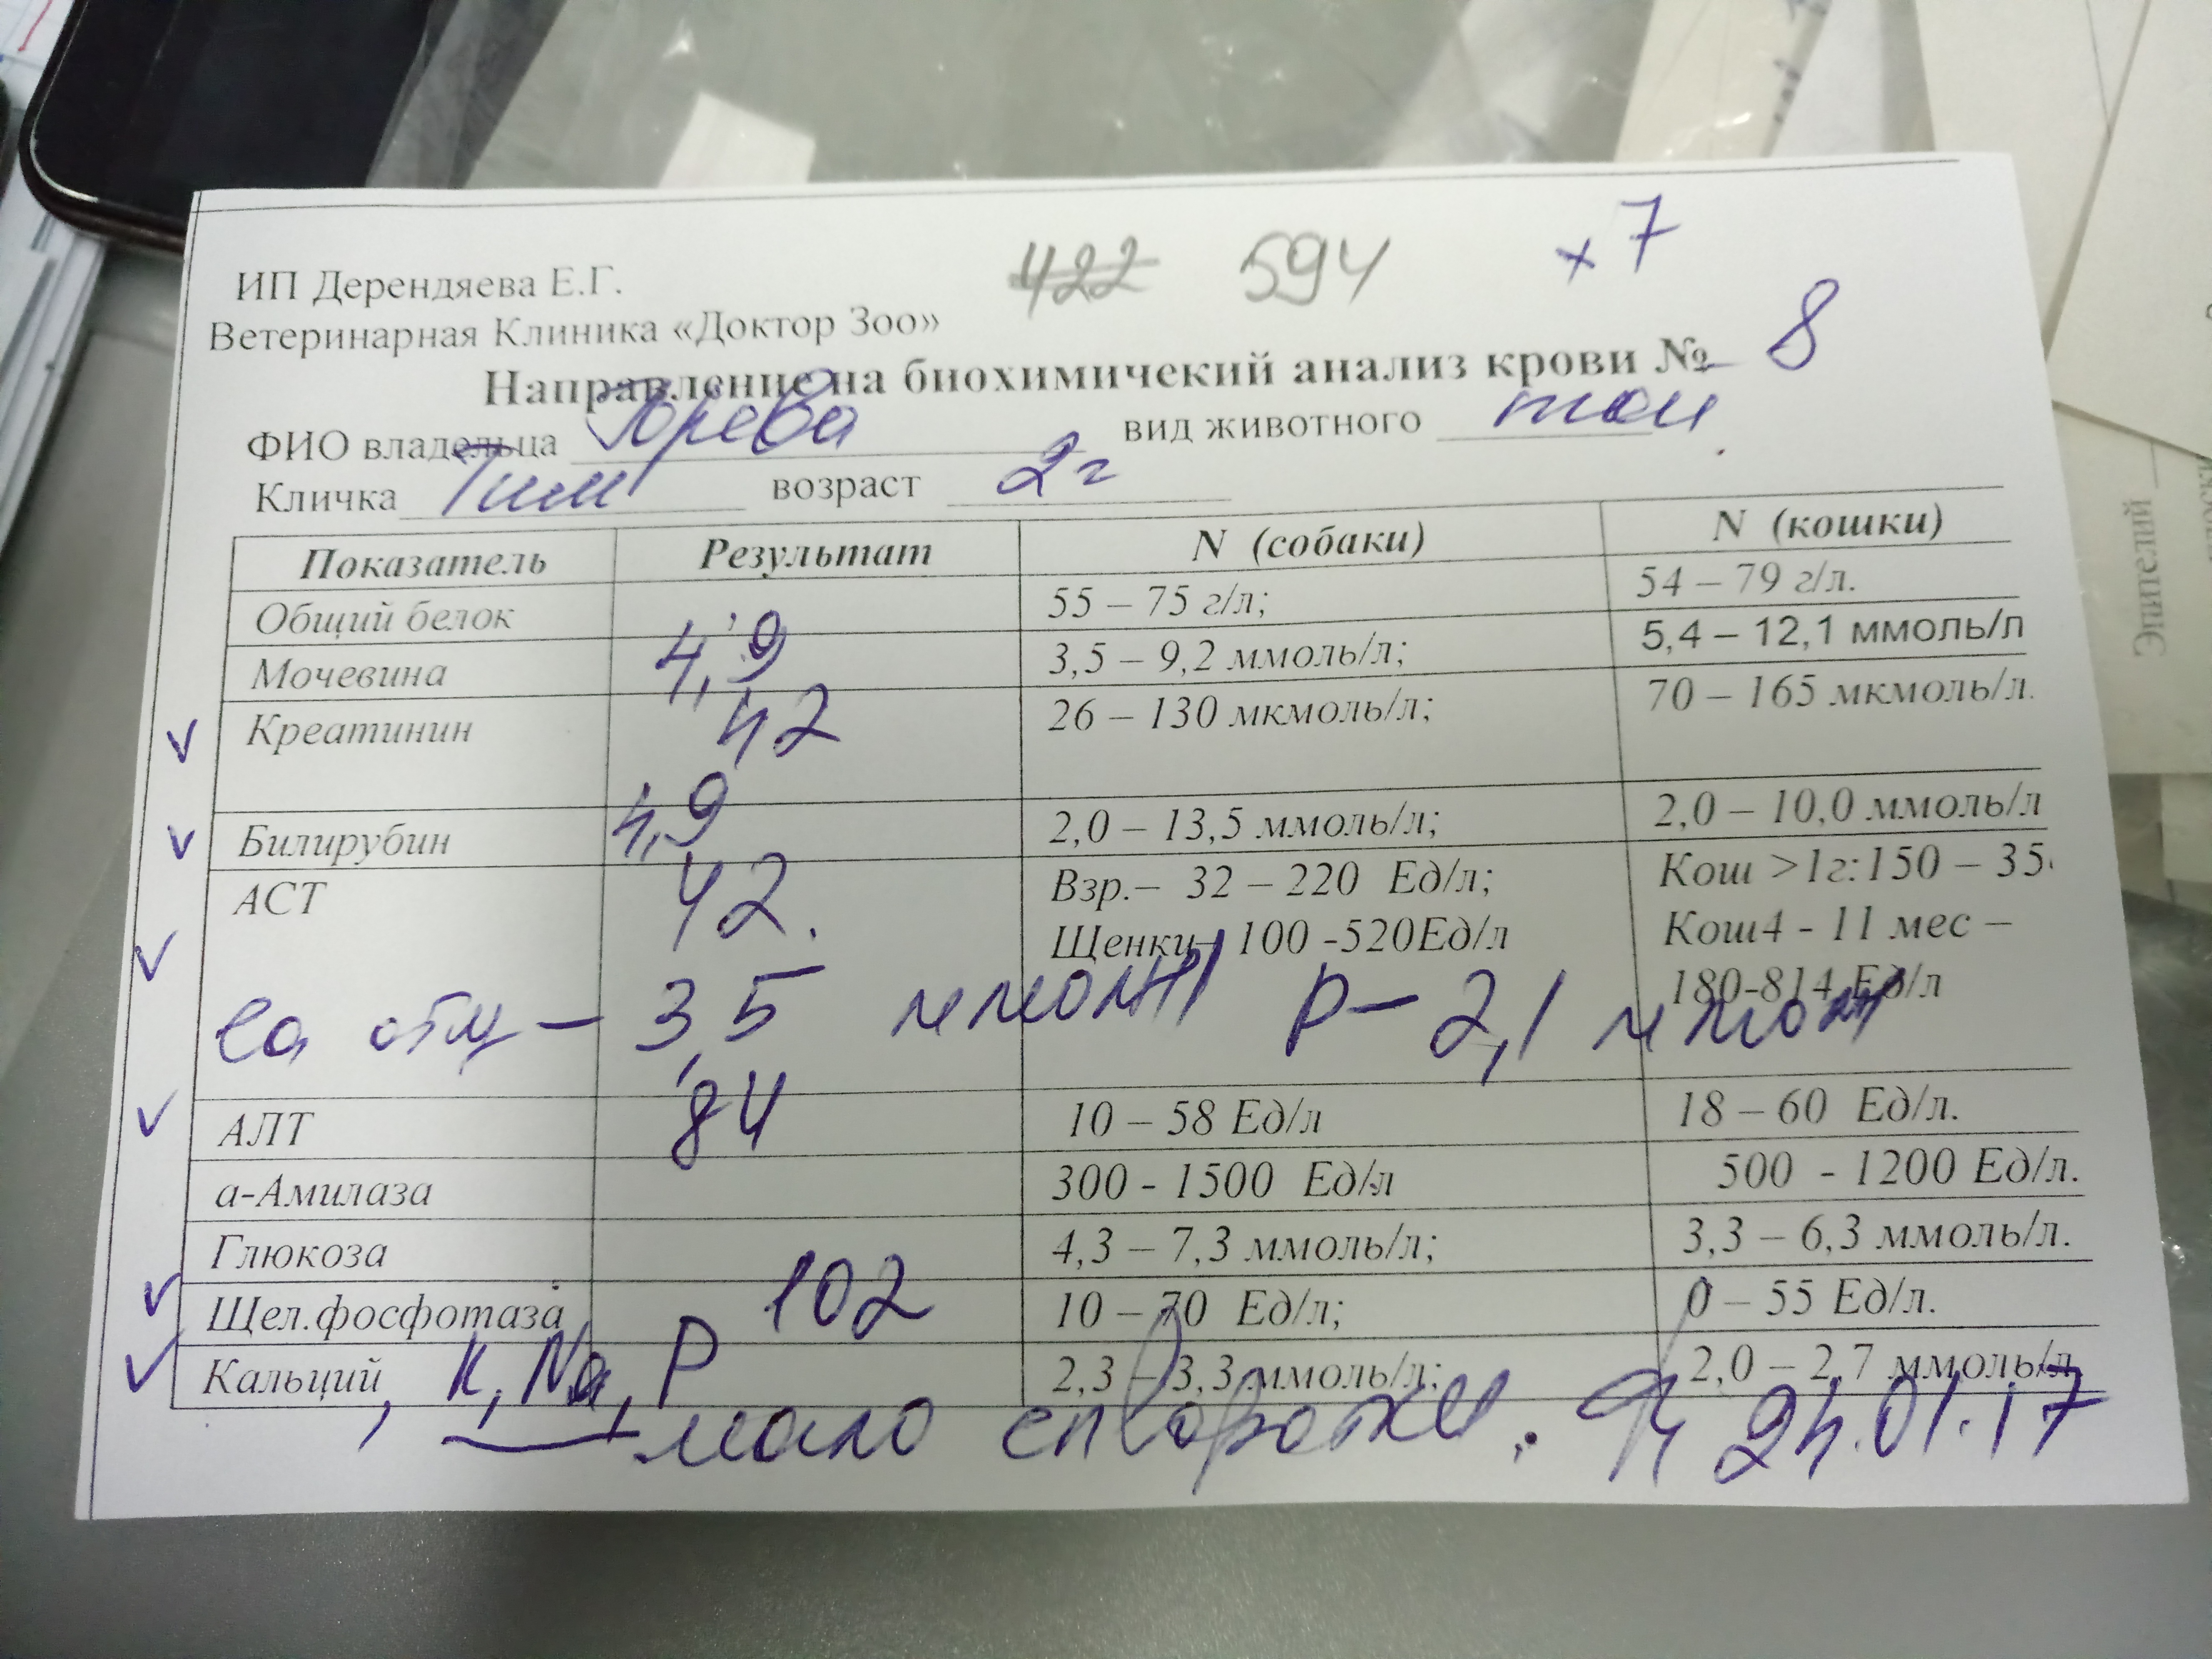 422 594 х 7
ИП Дерендяева Е.Г.
Ветеринарная Клиника «Доктор Зоо»
Направление на биохимичекий анализ крови № 8
ФИО владельца вид животного той
Кличка Тим возраст 2 г
Показатель Результат N (собаки) N (кошки)
Общий белок 55 – 75 г/л; 54 – 79 г/л.
Мочевина 4,9 3,5 – 9,2 ммоль/л; 5,4 – 12,1 ммоль/л
Креатинин 42 26 – 130 мкмоль/л; 70 – 165 мкмоль/л.
Билирубин 4,9 2,0 – 13,5 ммоль/л; 2,0 – 10,0 ммоль/л
АСТ 42. Взр.– 32 – 220 Ед/л; Кош >1г:150 – 35
Щенки– 100 -520Ед/л Кош4 - 11 мес –
180-814 Ед/л
Ca общ – 3,5 ммоль/л P – 2,1 ммоль/л
АЛТ 84 10 – 58 Ед/л 18 – 60 Ед/л.
а-Амилаза 300 - 1500 Ед/л 500 - 1200 Ед/л.
Глюкоза 4,3 – 7,3 ммоль/л; 3,3 – 6,3 ммоль/л.
Щел.фосфотаза 102 10 – 70 Ед/л; 0 – 55 Ед/л.
Кальций, K, Na, P 2,3 – 3,3 ммоль/л; 2,0 – 2,7 ммоль/л
мало сыворотки. 24.01.17
Эпителий